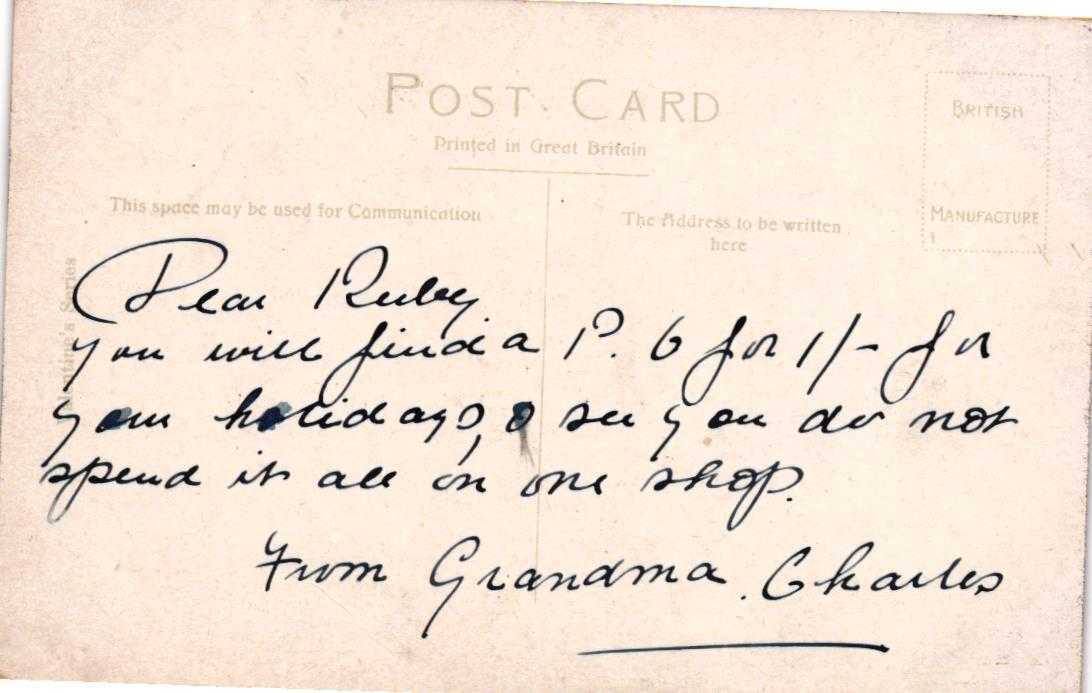 POST CARD
Printed in Great Britain
BRITISH
MANUFACTURE
This space may be used for Communication
The Address to be written
here
Series
Dear Ruby.
you will find a P. O for 1/- for
your holidays, & see you do not
spend it all on one shop.
From Grandma. Charles